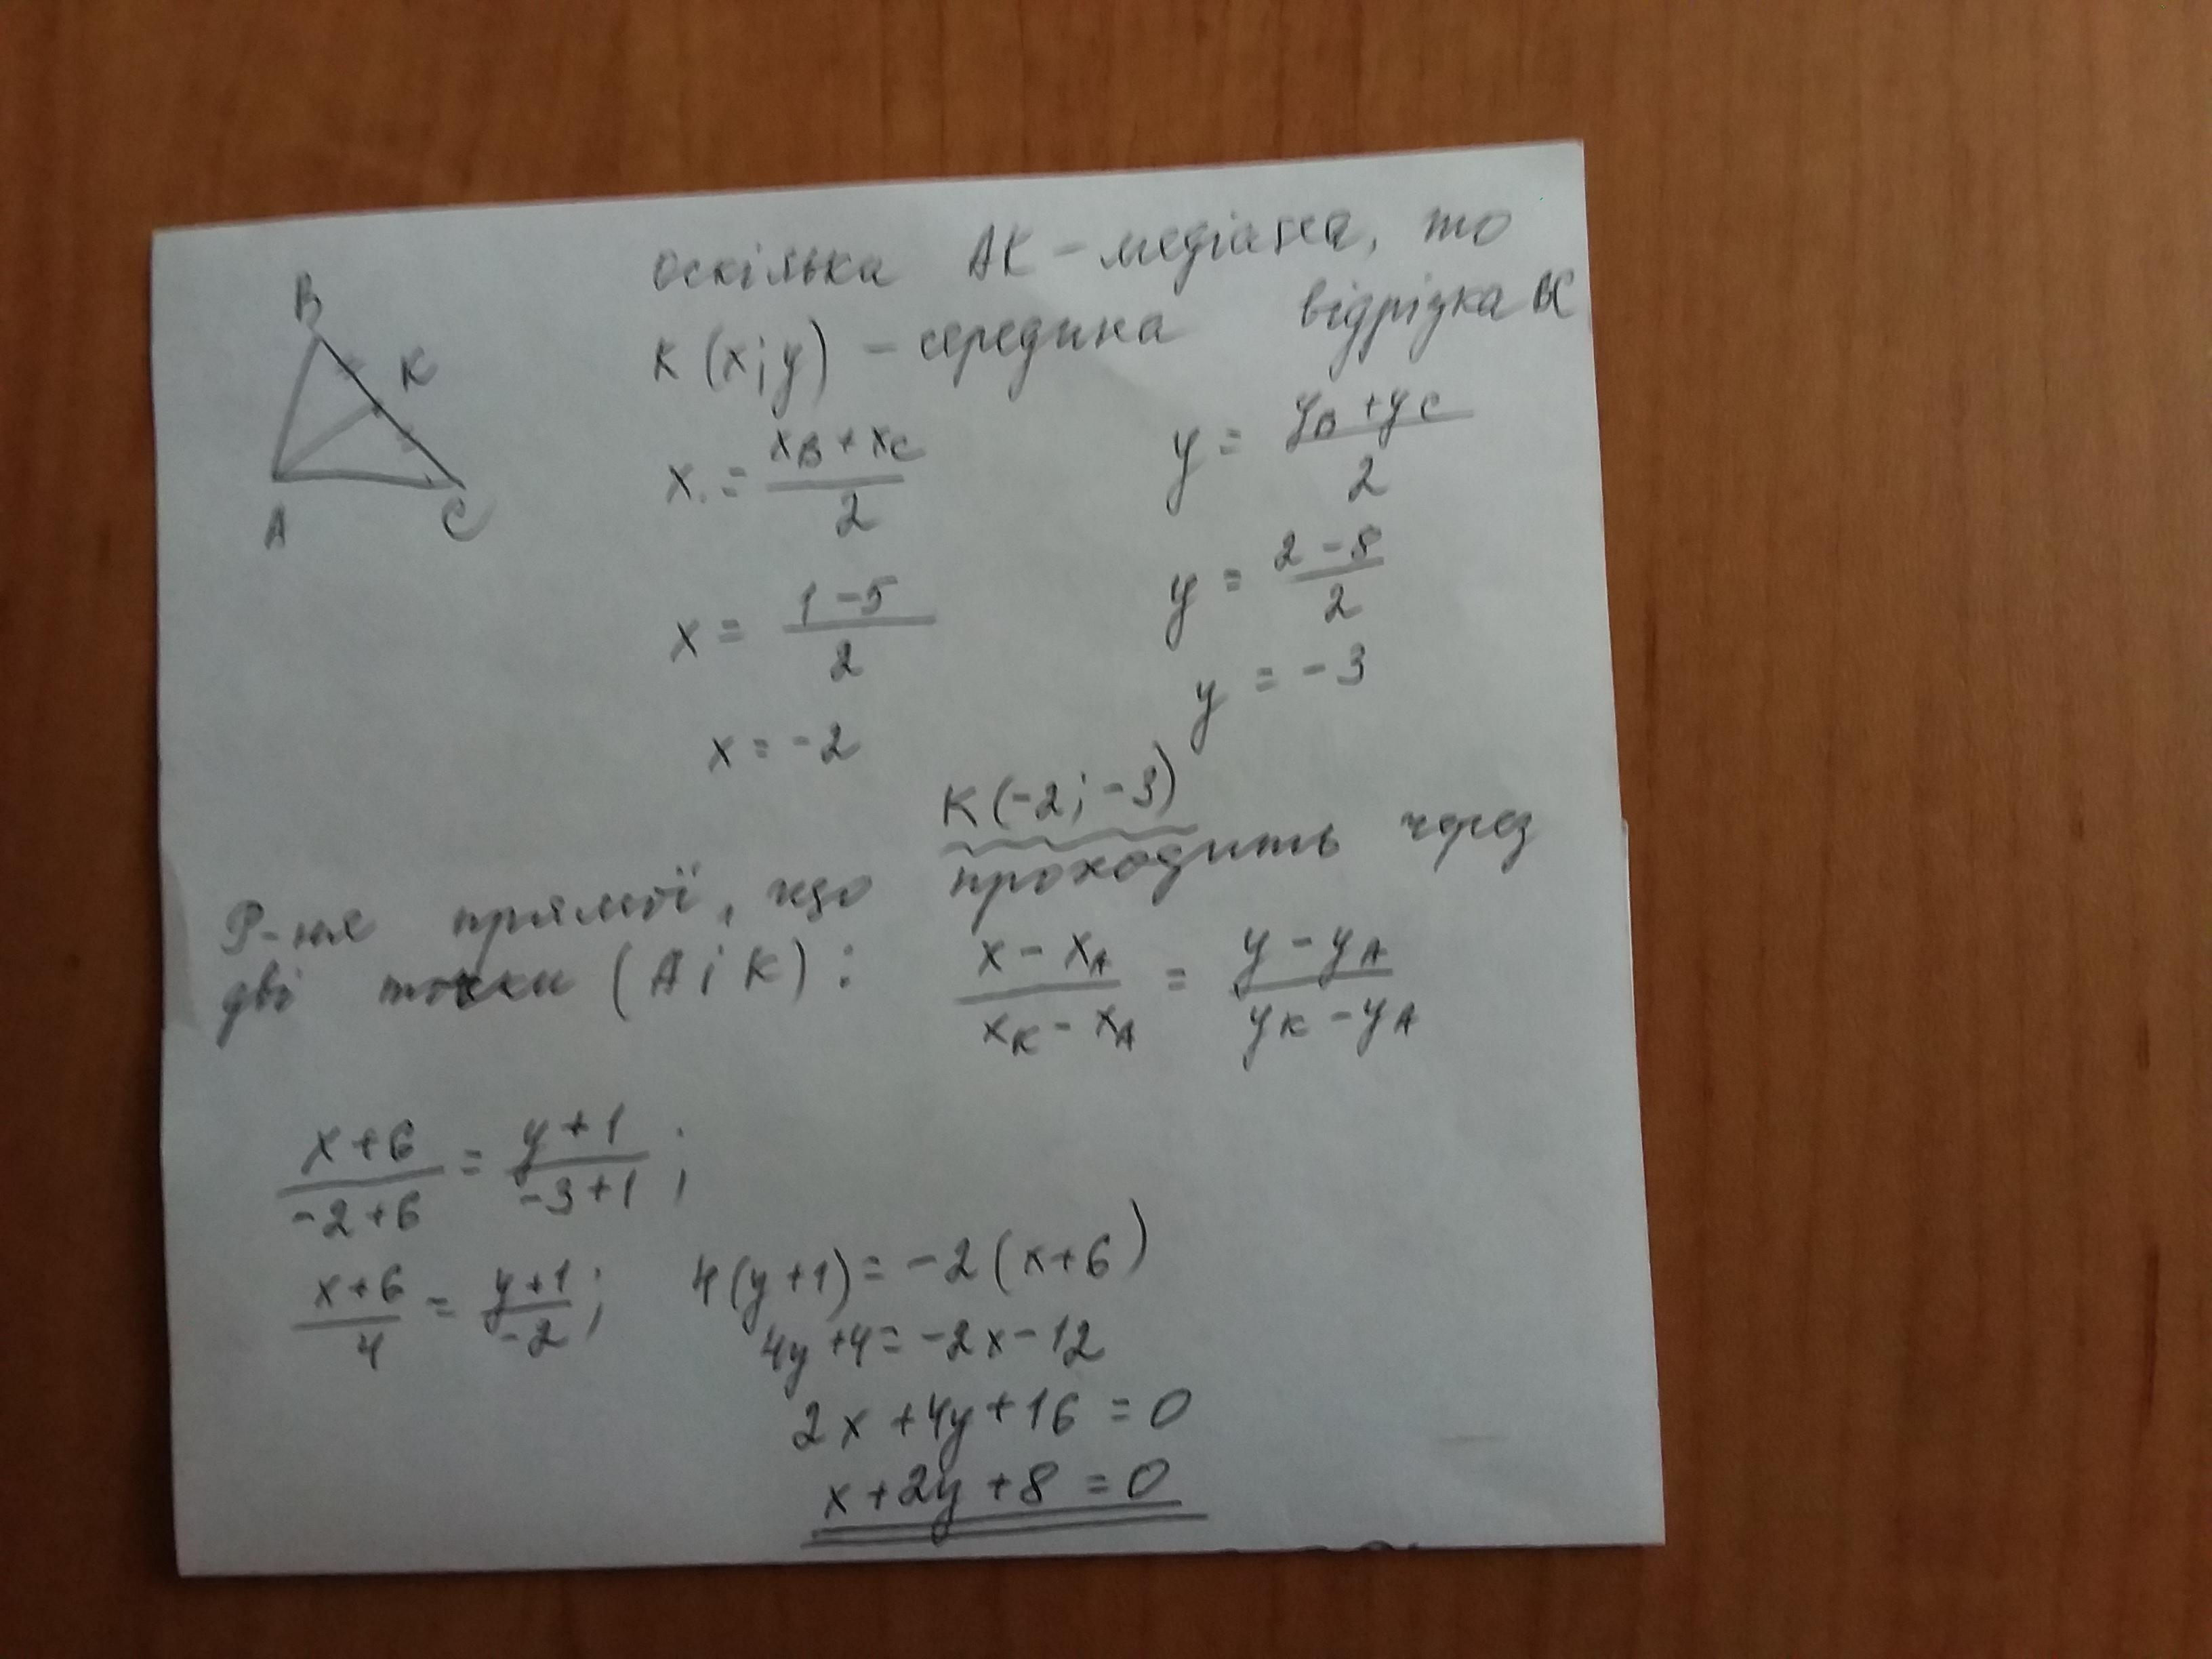 B
K
A
C
оскільки AK - медіана, то
K (x; y) - середина відрізка BC
x = (x_B + x_C)/2 y = (y_B + y_C)/2
x = (1 - 5)/2 y = (2 - 8)/2
x = -2 y = -3
K(-2; -3)
Р-ня прямої, що проходить через
дві точки (A і K): (x - x_A)/(x_K - x_A) = (y - y_A)/(y_K - y_A)
(x+6)/(-2+6) = (y+1)/(-3+1);
(x+6)/4 = (y+1)/-2; 4(y+1) = -2(x+6)
4y+4 = -2x-12
2x+4y+16 = 0
x+2y+8 = 0